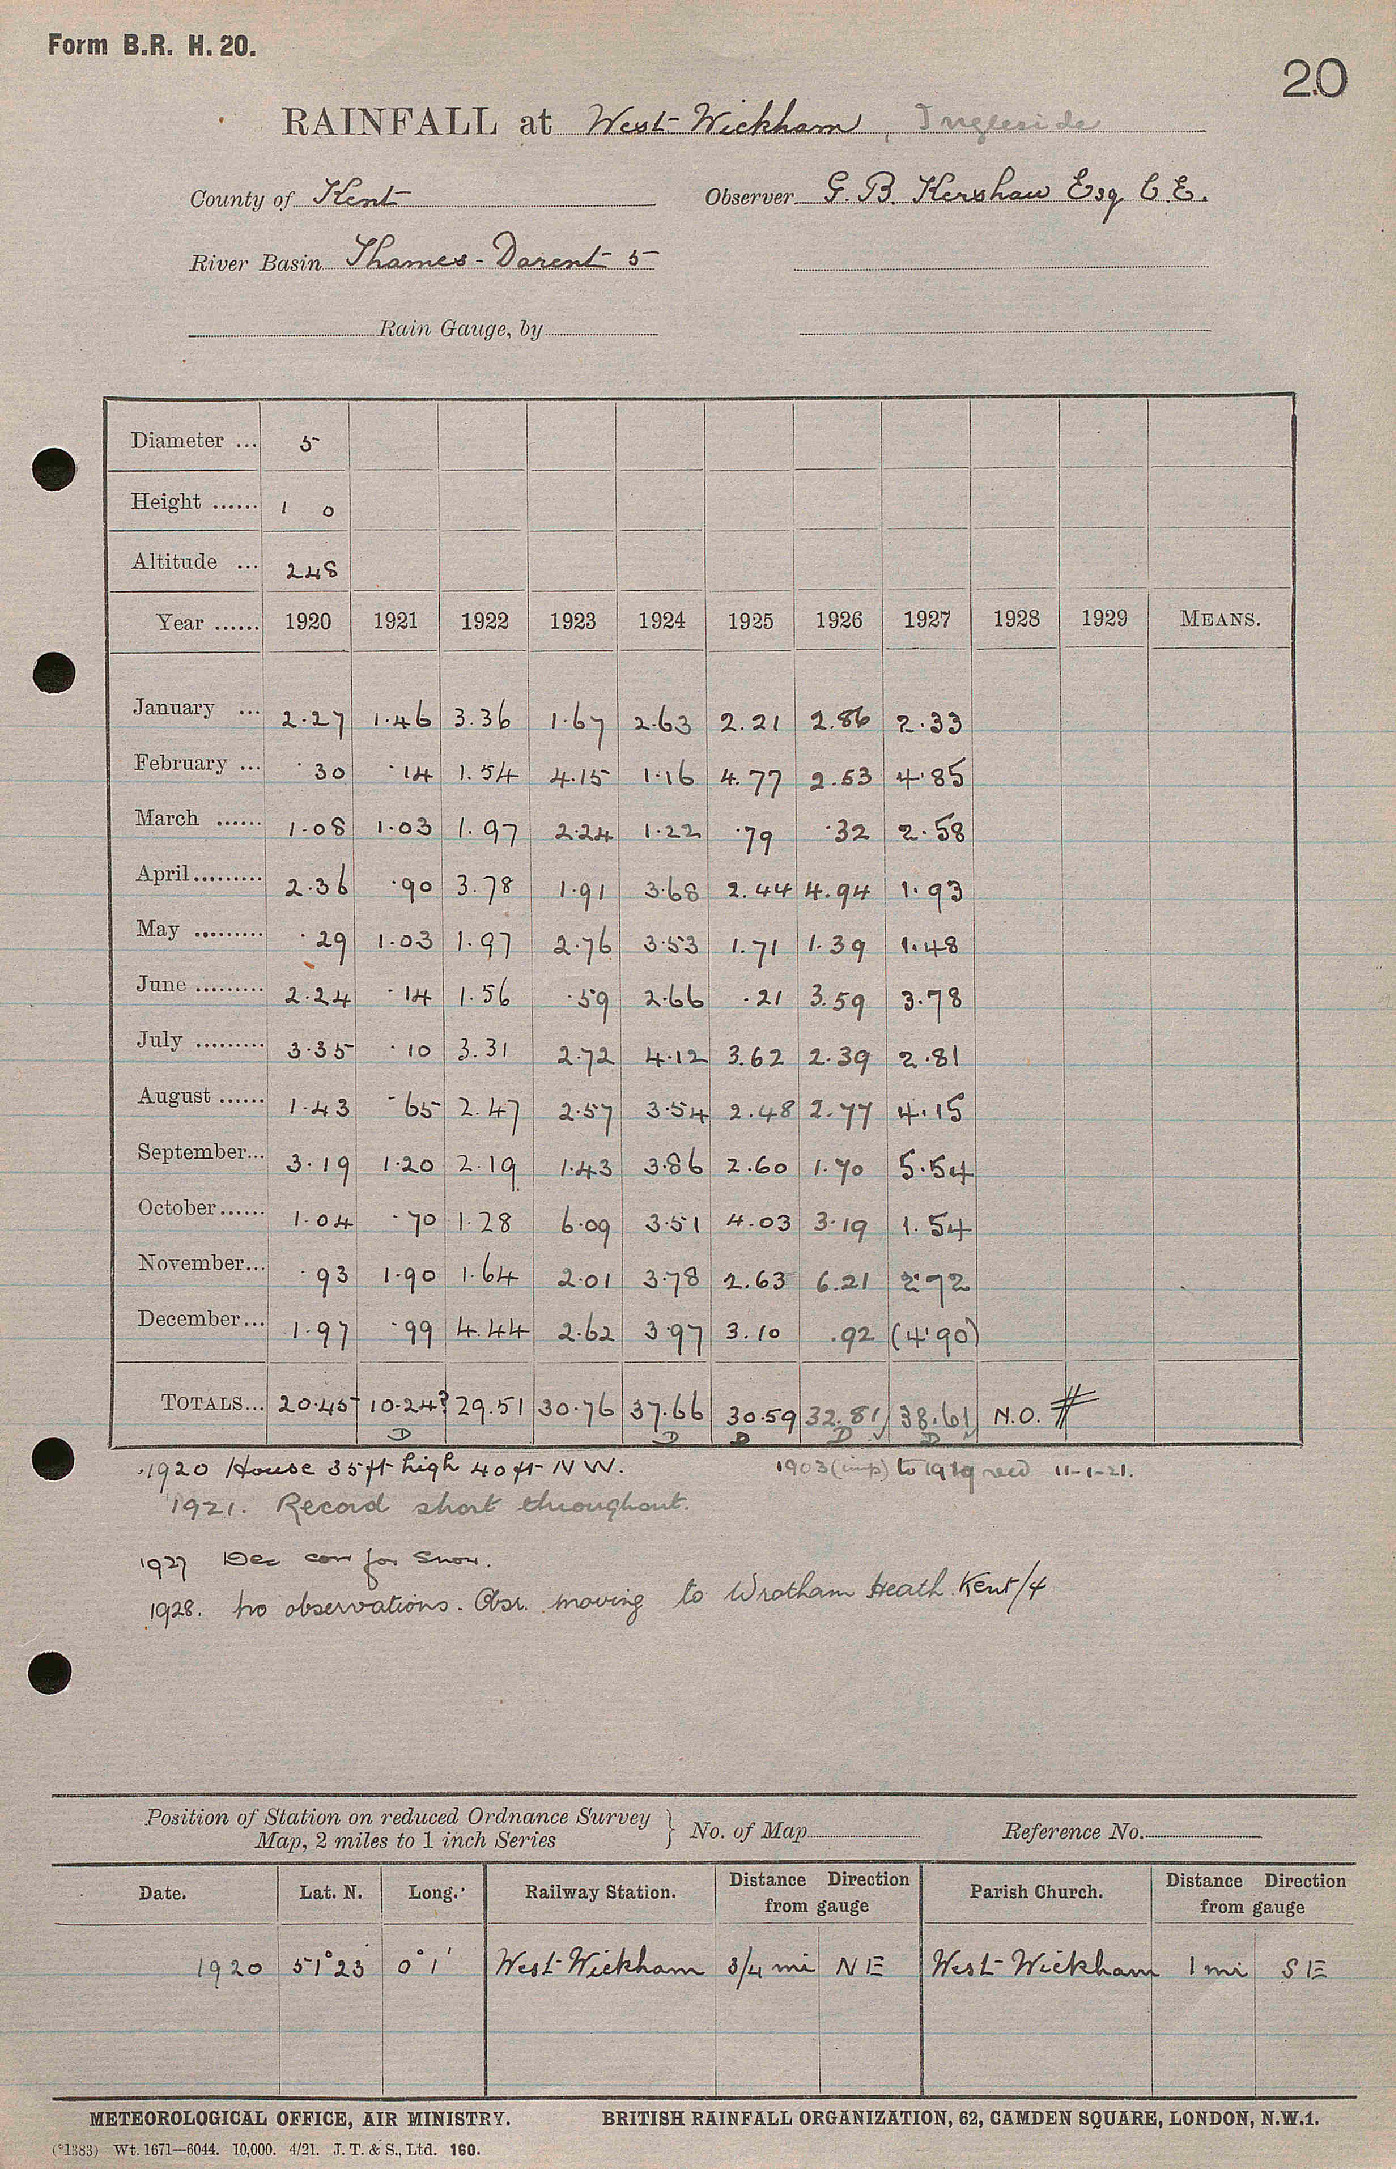 Form B.R. H. 20.
20
RAINFALL at West Wickham, Ingleside
County of Kent Observer G. B. Kershaw Esq C.E.
River Basin Thames - Darent 5
Rain Gauge, by
Diameter ... 5
Height ...... 1 0
Altitude ... 248
Year ...... 1920 1921 1922 1923 1924 1925 1926 1927 1928 1929 MEANS.
January ... 2.27 1.46 3.36 1.67 2.63 2.21 2.86 2.33
February ... .30 .14 1.54 4.15 1.16 4.77 2.53 4.85
March ...... 1.08 1.03 1.97 2.24 1.22 .79 .32 2.58
April ......... 2.36 .90 3.78 1.91 3.68 2.44 4.94 1.93
May ......... .29 1.03 1.97 2.76 3.53 1.71 1.39 1.48
June ......... 2.24 .14 1.56 .59 2.66 .21 3.59 3.78
July ......... 3.35 .10 3.31 2.72 4.12 3.62 2.39 2.81
August ...... 1.43 .65 2.47 2.57 3.54 2.48 2.77 4.15
September... 3.19 1.20 2.19 1.43 3.86 2.60 1.70 5.54
October ...... 1.04 .70 1.28 6.09 3.51 4.03 3.19 1.54
November... .93 1.90 1.64 2.01 3.78 2.63 6.21 2.72
December... 1.97 .99 4.44 2.62 3.97 3.10 .92 (4.90)
TOTALS... 20.45 10.24? 29.51 30.76 37.66 30.59 32.81 38.61 N.O. #
D D D D D
1920 House 35 ft high 40 ft N W. 1903 (imp) to 1919 recd 11-1-21.
1921. Record short throughout.
1927 Dec corr for Snow.
1928. No observations. Obsr. moving to Wrotham Heath Kent/4
Position of Station on reduced Ordnance Survey
Map, 2 miles to 1 inch Series } No. of Map Reference No.
Date. Lat. N. Long. Railway Station. Distance Direction from gauge Parish Church. Distance Direction from gauge
1920 51°23 0°1' West Wickham 3/4 mi NE West Wickham 1 mi SE
METEOROLOGICAL OFFICE, AIR MINISTRY. BRITISH RAINFALL ORGANIZATION, 62, CAMDEN SQUARE, LONDON, N.W.1.
(*1383) Wt. 1671—6044. 10,000. 4/21. J. T. & S., Ltd. 160.